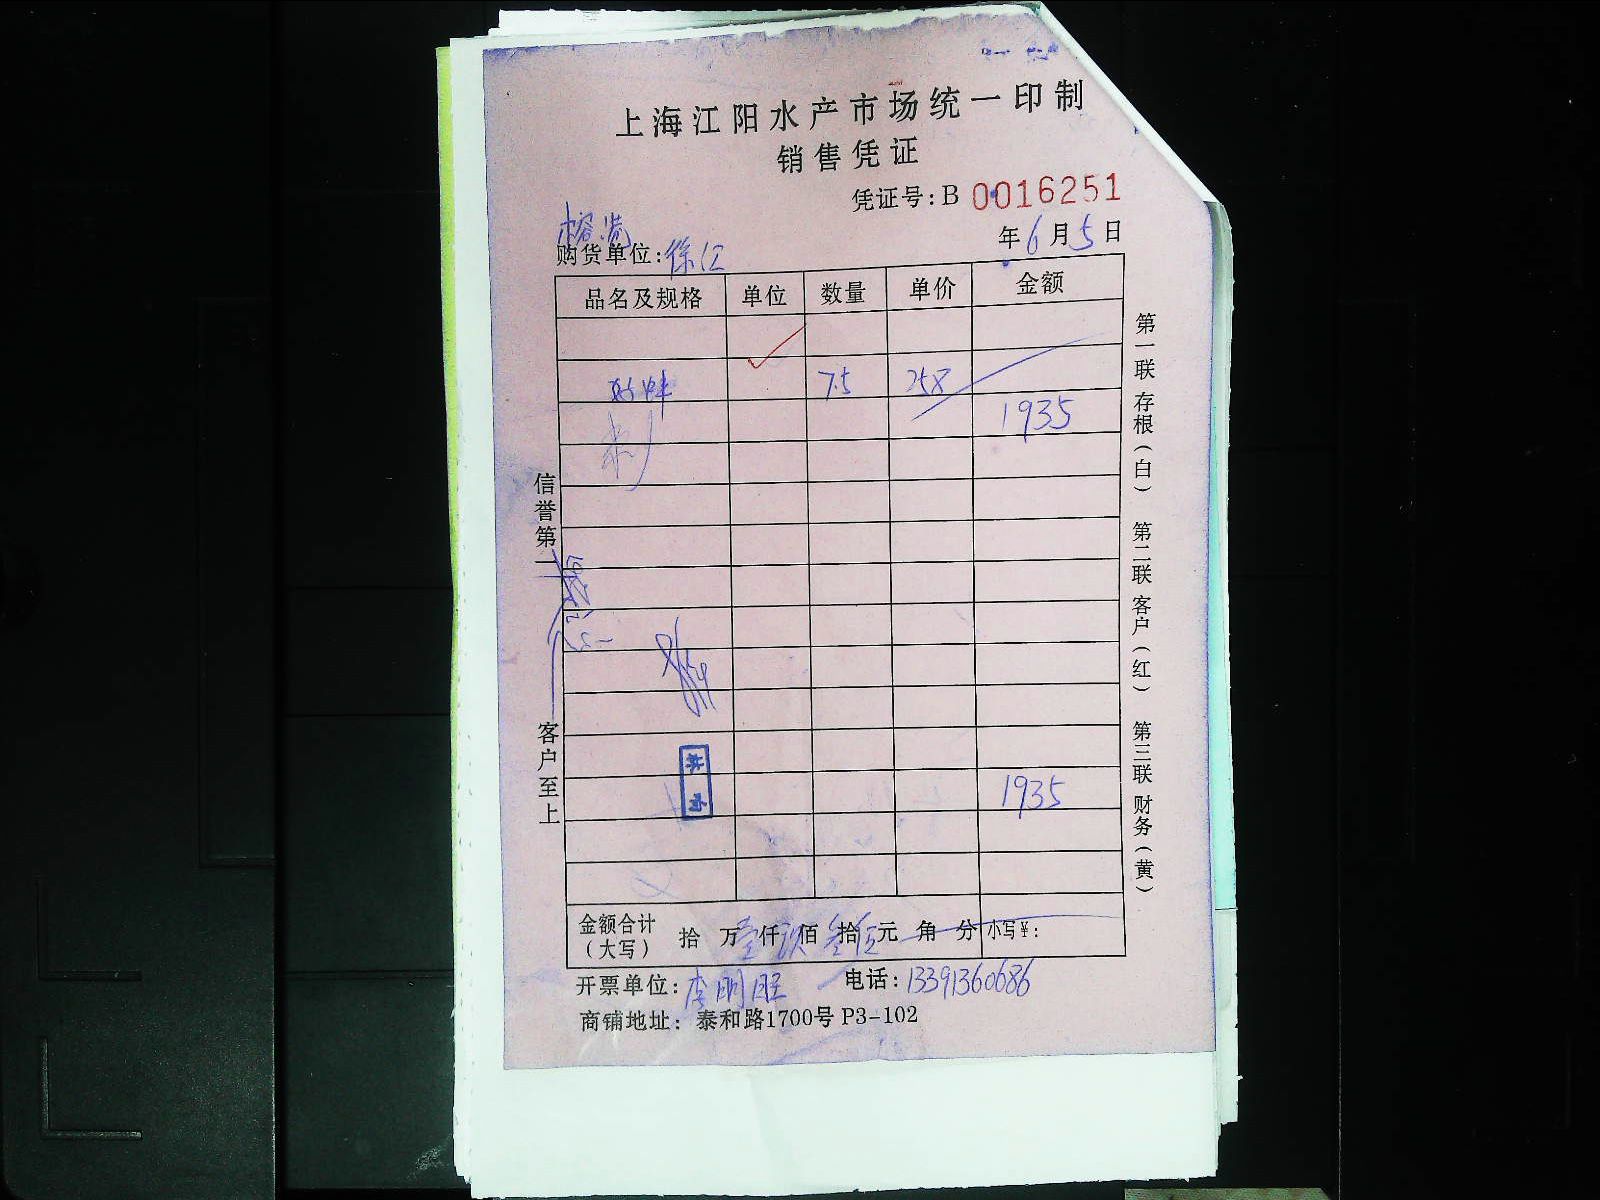 上海江阳水产市场统一印制
销售凭证
凭证号:B 0016251
年6月5日
购货单位:徐汇
品名及规格 单位 数量 单价 金额
7.5 258
1935
1935
金额合计(大写) 拾 万壹仟玖佰叁拾伍元 角 分 小写¥:
开票单位:李明 电话:13391360686
商铺地址:泰和路1700号 P3-102
信誉第一 客户至上
第一联 存根(白) 第二联 客户(红) 第三联 财务(黄)